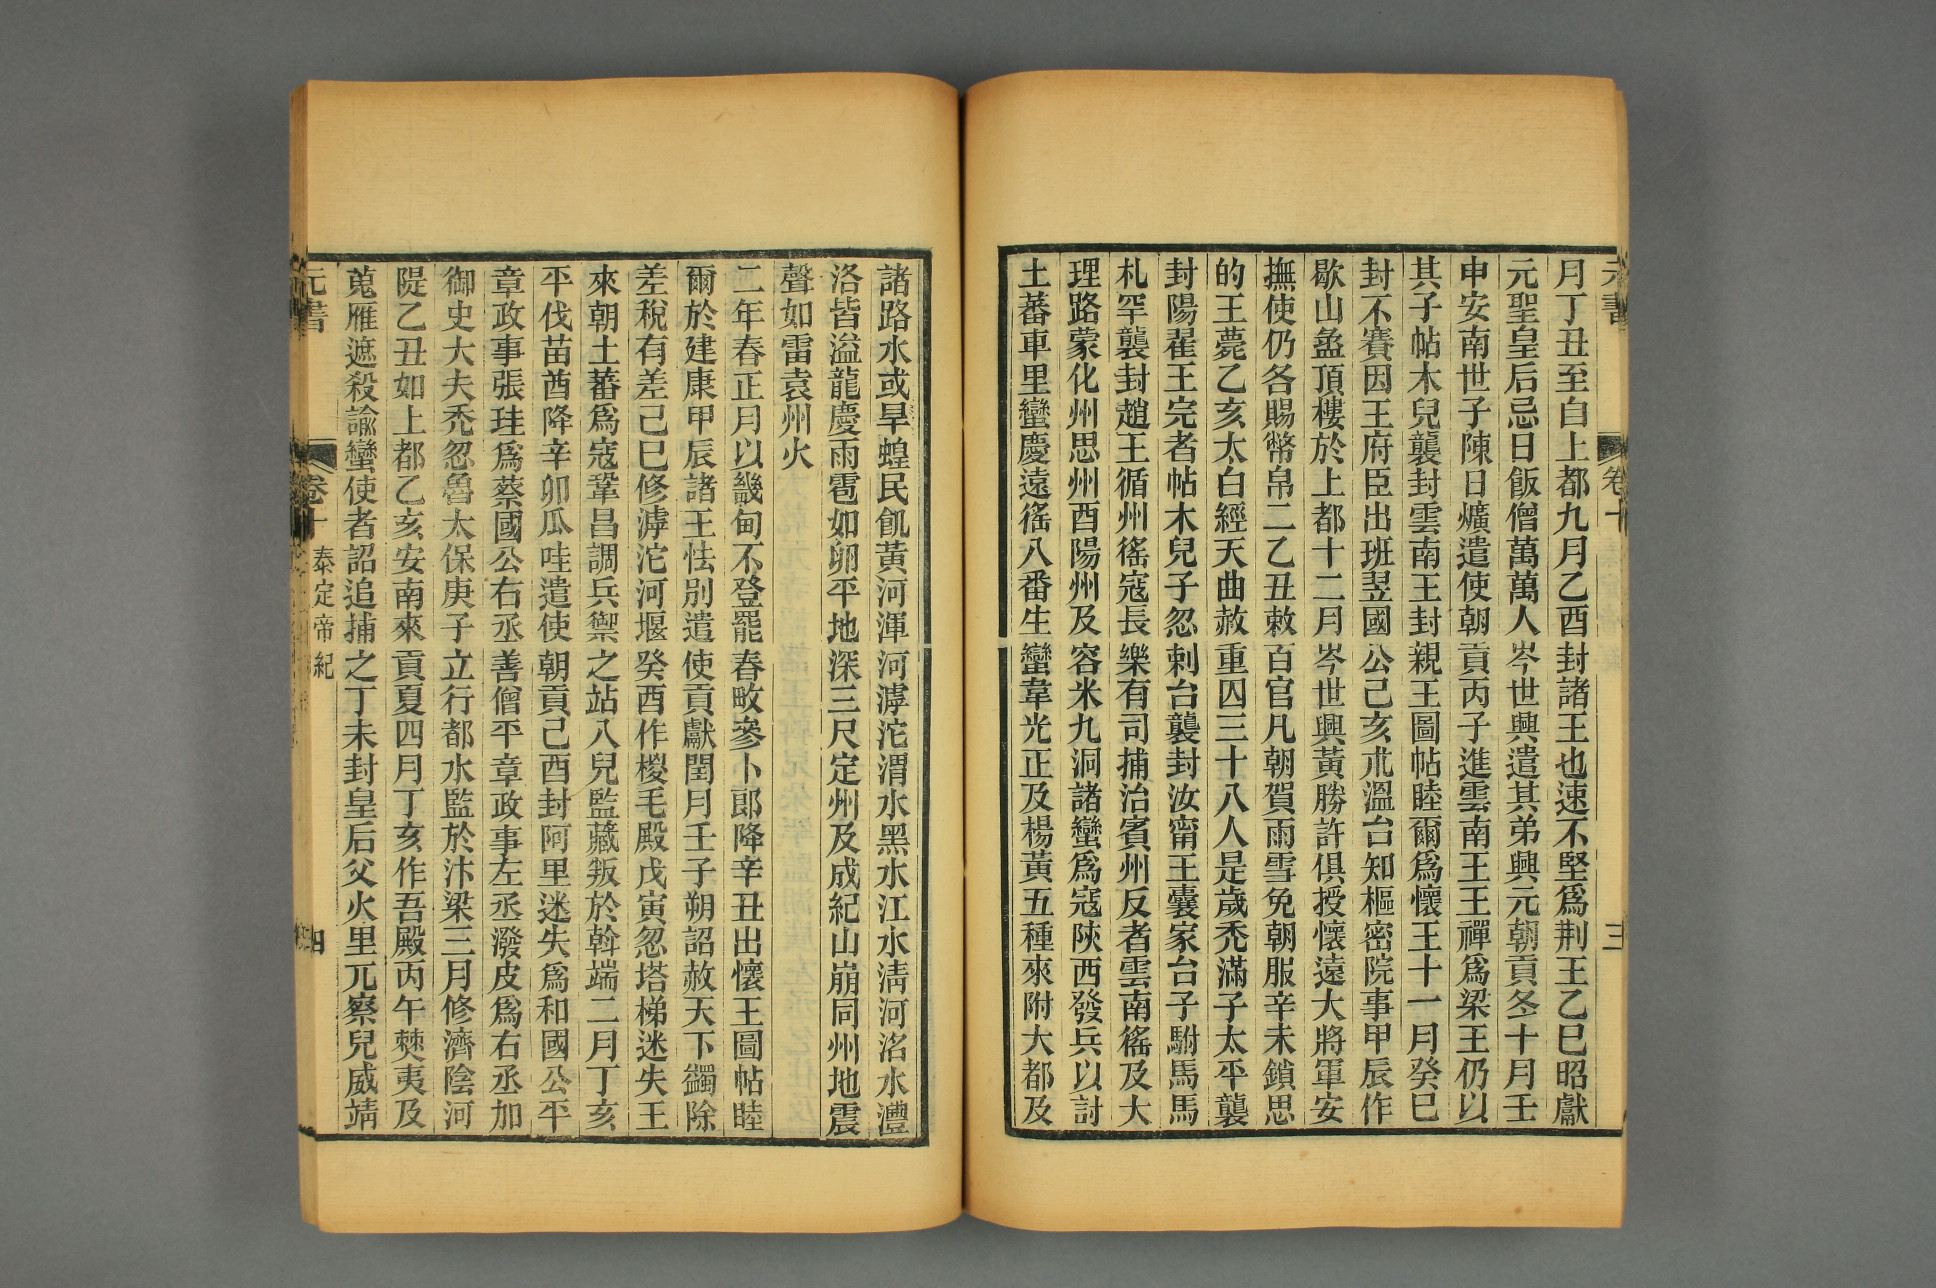 月丁丑至自上都九月乙酉封諸王也速不堅爲荆王乙巳昭獻
元聖皇后忌日飯僧萬萬人岑世興遣其弟興元朝貢冬十月壬
申安南世子陳日爌遣使朝貢丙子進雲南王王禪爲梁王仍以
其子帖木兒襲封雲南王封親王圖帖睦爾爲懷王十一月癸巳
封不賽因王府臣出班翌國公己亥朮溫台知樞密院事甲辰作
歇山盝頂樓於上都十二月岑世興黃勝許俱授懷遠大將軍安
撫使仍各賜幣帛二乙丑敕百官凡朝賀雨雪免朝服辛未鎖思
的王薨乙亥太白經天曲赦重囚三十八人是歲禿滿子太平襲
封陽翟王完者帖木兒子忽剌台襲封汝甯王囊家台子駙馬馬
札罕襲封趙王循州徭寇長樂有司捕治賓州反者雲南徭及大
理路蒙化州思州酉陽州及容米九洞諸蠻爲寇陝西發兵以討
土蕃車里蠻慶遠徭八番生蠻韋光正及楊黃五種來附大都及
諸路水或旱蝗民飢黃河渾河滹沱渭水黑水江水淸河洺水澧
洛皆溢龍慶雨雹如卵平地深三尺定州及成紀山崩同州地震
聲如雷袁州火
二年春正月以畿甸不登罷春畋參卜郎降辛丑出懷王圖帖睦
爾於建康甲辰諸王怯別遣使貢獻閏月壬子朔詔赦天下蠲除
差稅有差己巳修滹沱河堰癸酉作椶毛殿戊寅忽塔梯迷失王
來朝土蕃爲寇鞏昌調兵禦之站八兒監藏叛於斡端二月丁亥
平伐苗酋降辛卯瓜哇遣使朝貢己酉封阿里迷失爲和國公平
章政事張珪爲蔡國公右丞善僧平章政事左丞潑皮爲右丞加
御史大夫禿忽魯太保庚子立行都水監於汴梁三月修濟陰河
隄乙丑如上都乙亥安南來貢夏四月丁亥作吾殿丙午僰夷及
蒐雁遮殺諭蠻使者詔追捕之丁未封皇后父火里兀察兒威靖
元書
卷十
泰定帝紀
四